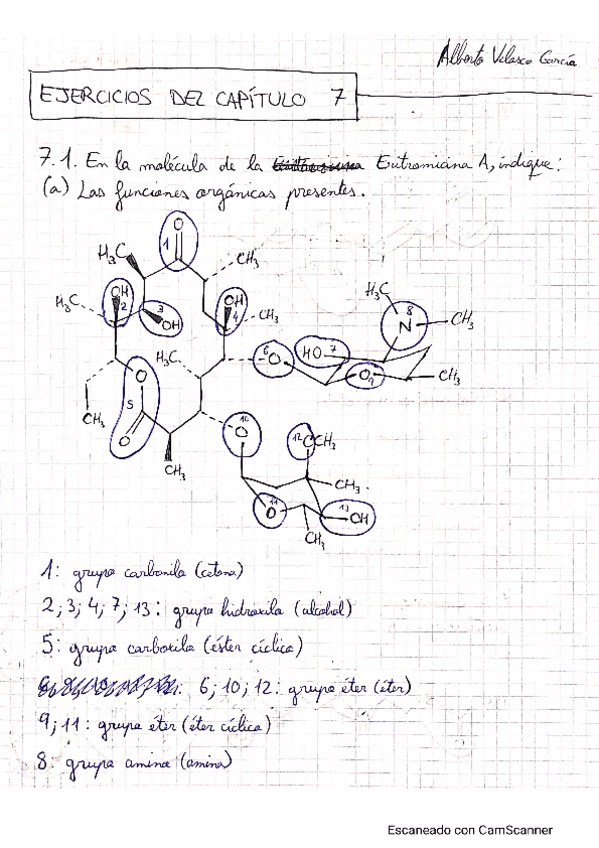 Alberto Velasco García
EJERCICIOS DEL CAPÍTULO 7
7.1. En la molécula de la Eritromicina A, indique:
(a) Las funciones orgánicas presentes.
O
1
H₃C
CH₃
OH
2
3
OH
H₃C
OH
4
CH₃
H₃C
8
N
CH₃
H₃C
6
O
HO
7
O
9
CH₃
O
5
O
CH₃
CH₃
10
O
12
OCH₃
CH₃
11
O
13
OH
CH₃
1: grupo carbonilo (cetona)
2; 3; 4; 7; 13: grupo hidroxilo (alcohol)
5: grupo carboxilo (éster cíclico)
6; 10; 12: grupo éter (éter)
9; 11: grupo éter (éter cíclico)
8: grupo amino (amina)
Escaneado con CamScanner